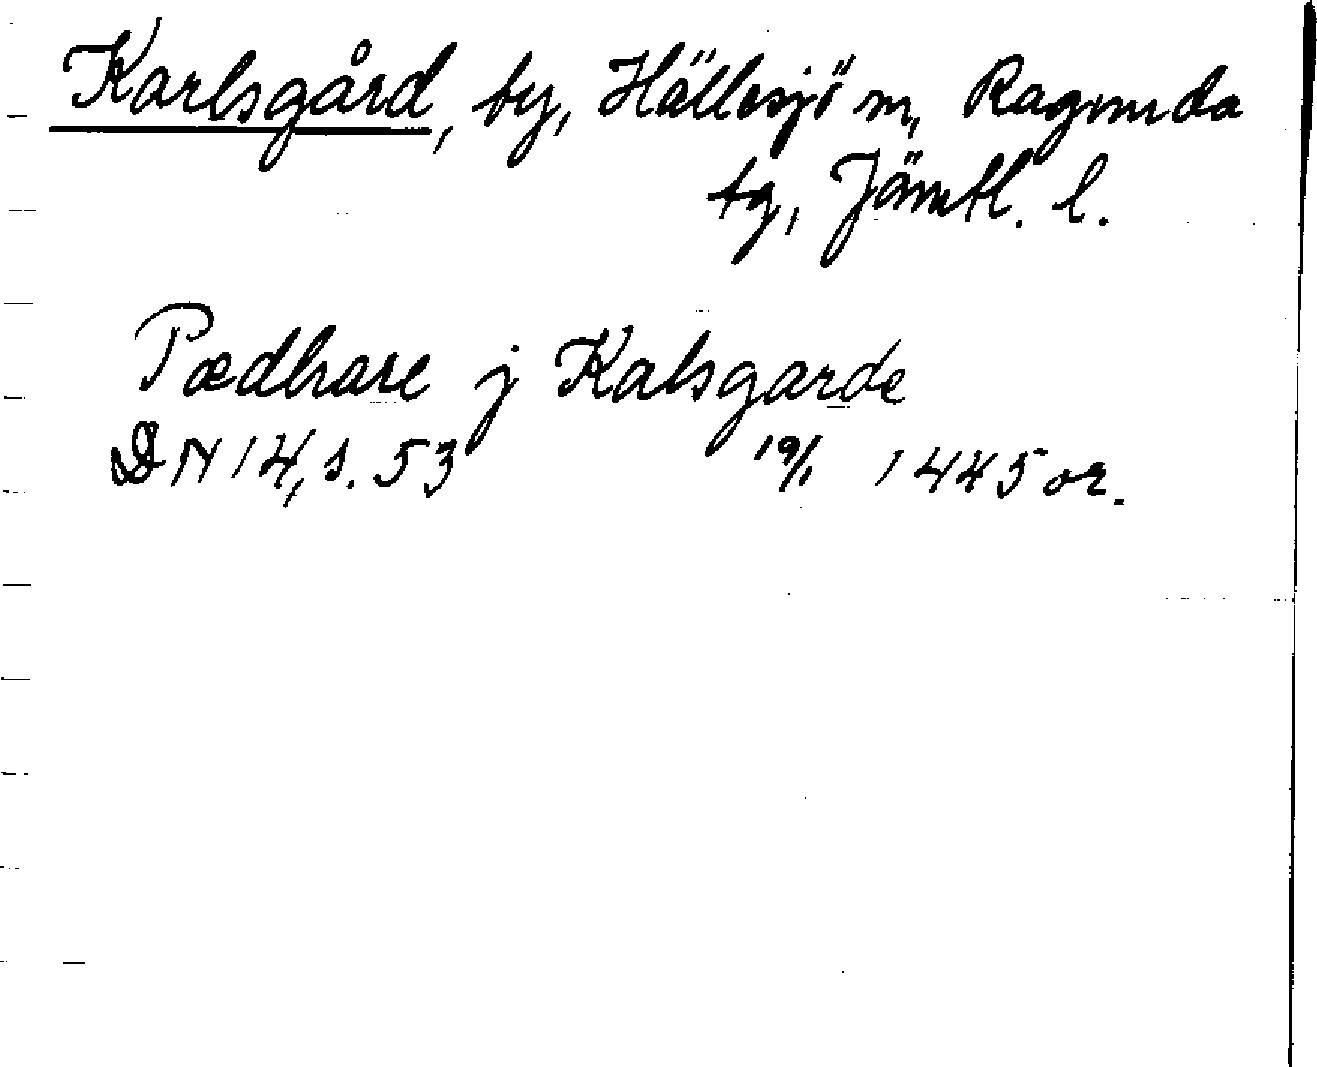 Karlsgård, by, Hällesjö sn, Ragunda
tg, Jämtl. l.
Pædhare j Kalsgarde
DN 14, s. 53 19/1 1445 or.